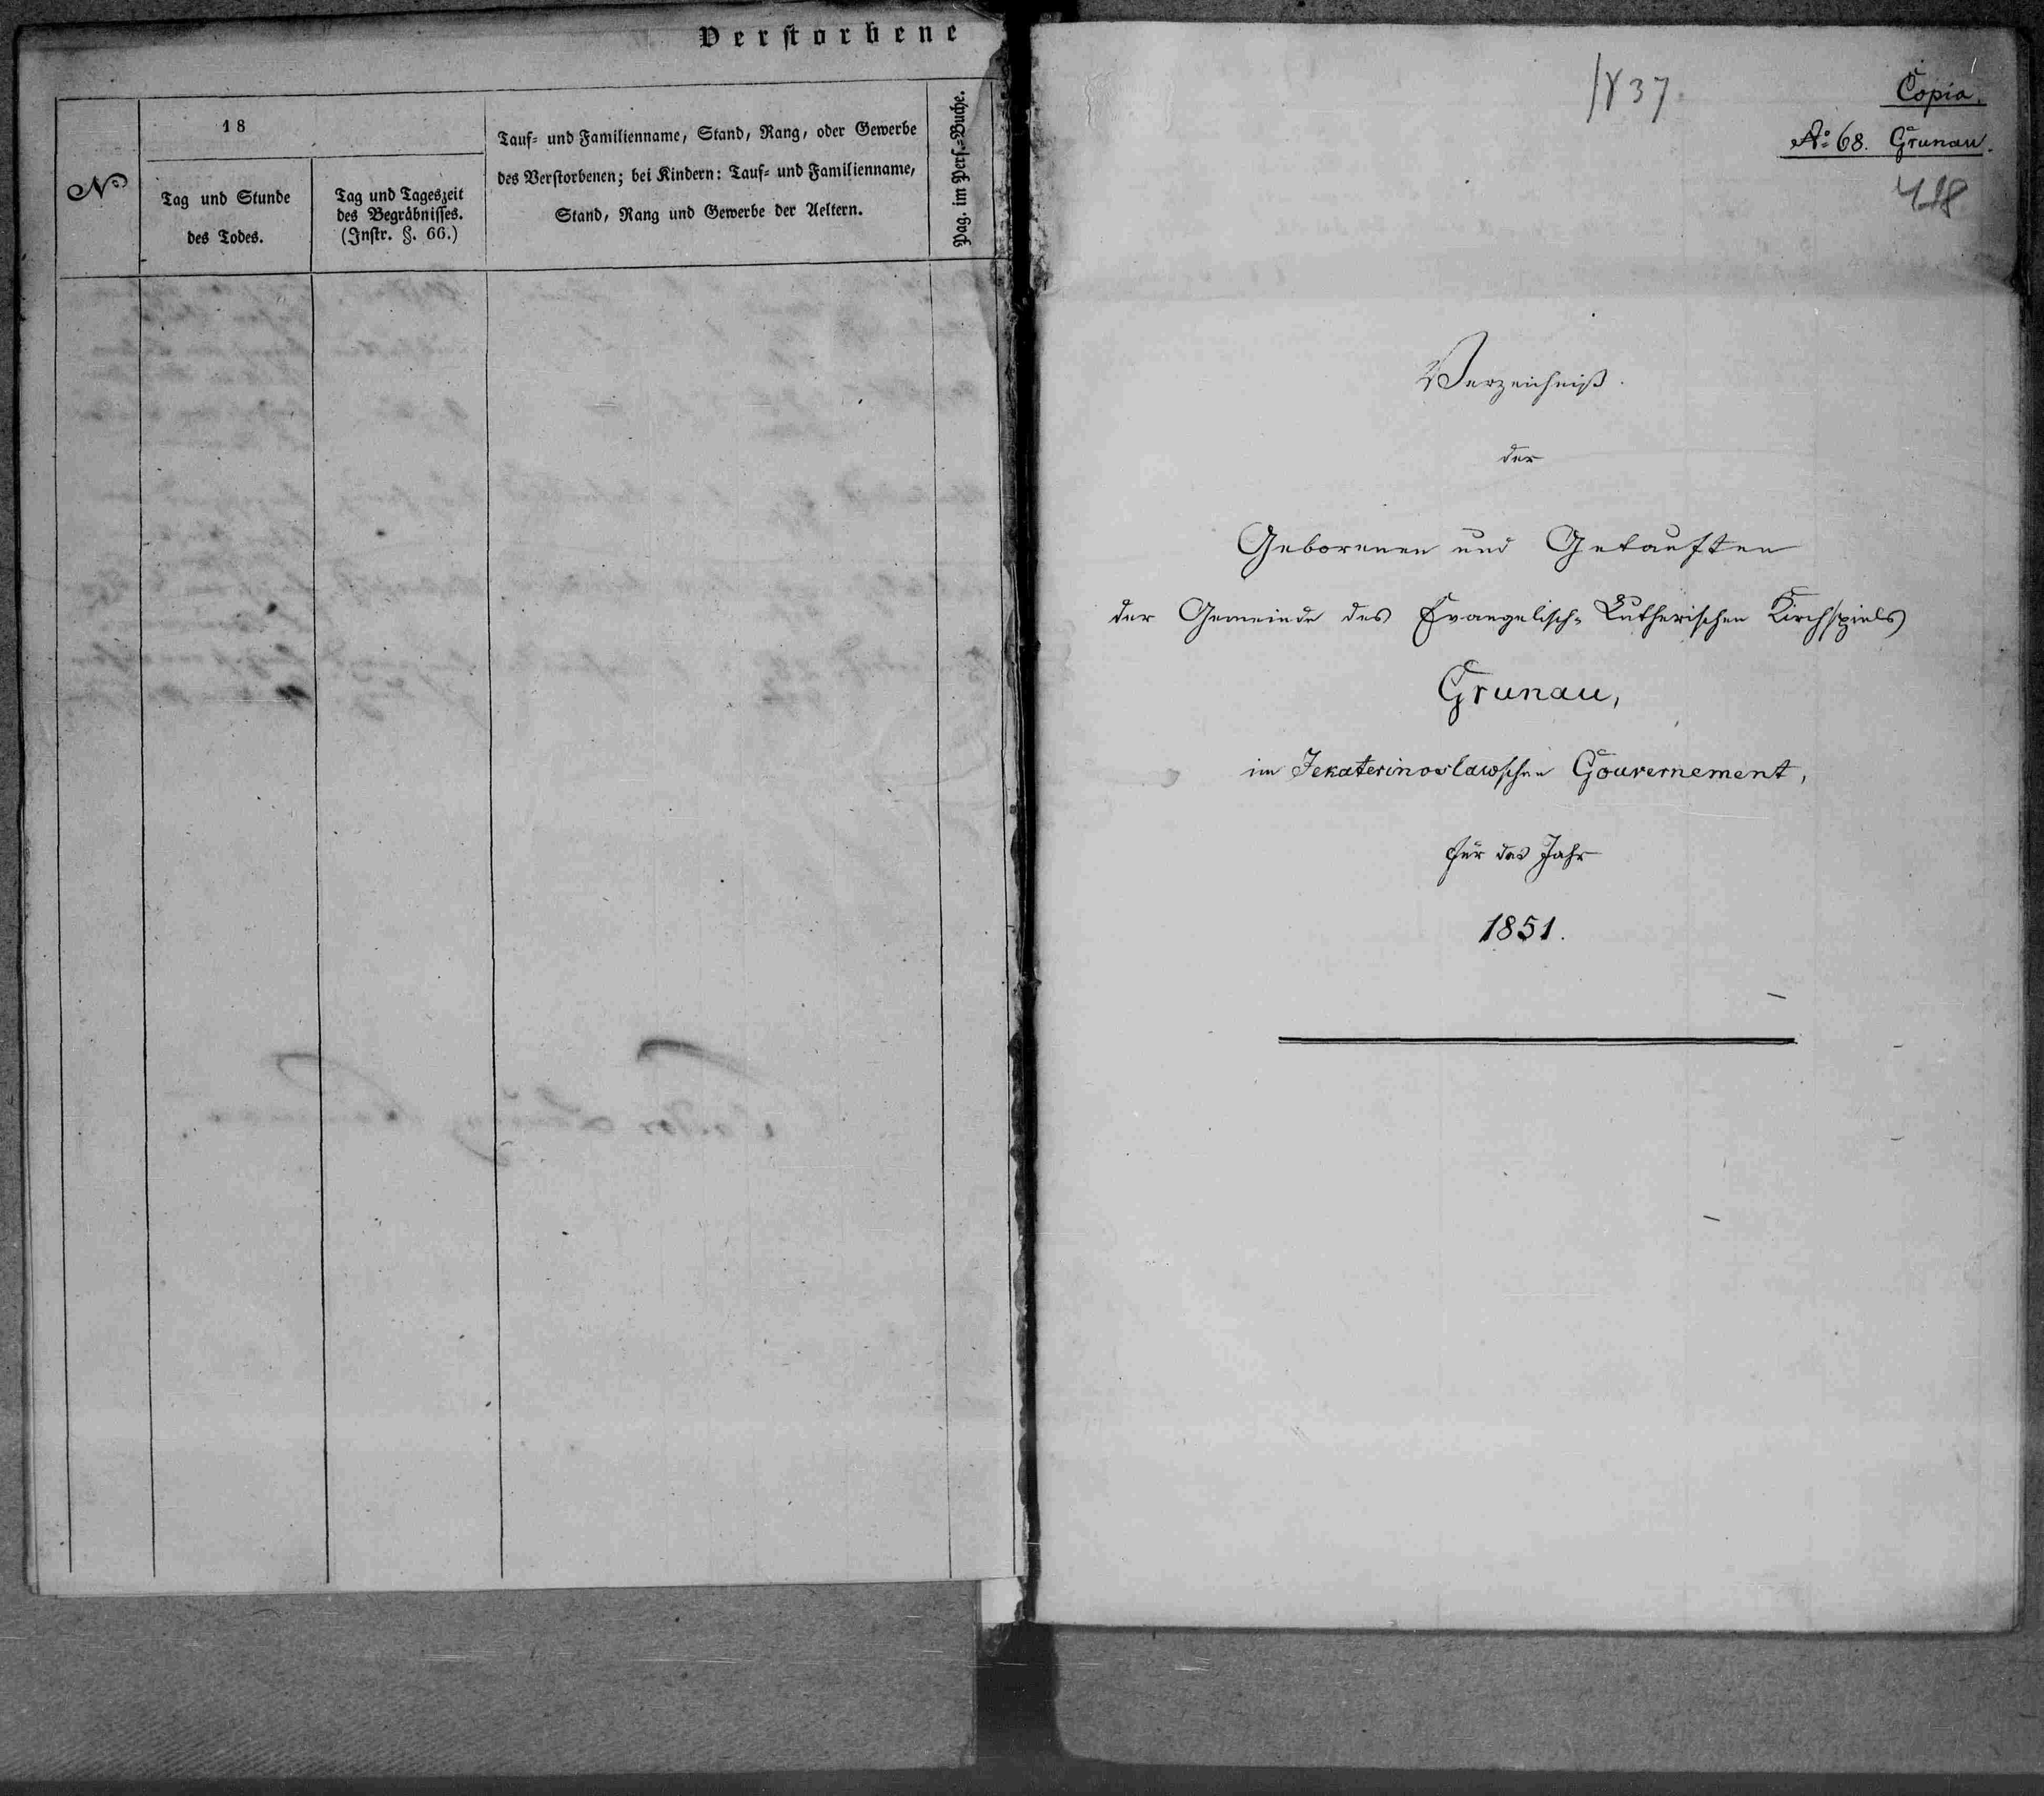 Verstorbene
18
Tauf- und Familienname, Stand, Rang, oder Gewerbe
des Verstorbenen; bei Kindern: Tauf- und Familienname,
Stand, Rang und Gewerbe der Aeltern.
Pag. im Pers.-Buche.
No
Tag und Stunde
des Todes.
Tag und Tageszeit
des Begräbnisses.
(Instr. §. 66.)
1837.
Copia.
No: 68. Grunau.
Verzeichniß.
der
Geborenen und Getauften
der Gemeinde des Evangelisch-Lutherischen Kirchspiels
Grunau,
im Jekaterinoslawschen Gouvernement,
für das Jahr
1851.